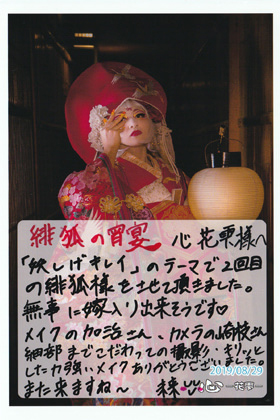 緋狐の宵宴 心花雫様へ
「妖しげキレイ」のテーマで2回目
の緋狐様をさせて頂きました。
無事に嫁入り出来そうです♡
メイクの加治さん、カメラの山崎校さん
細部までこだわっての撮影、キリッと
した力強いメイクありがとうございました。
また来ますね〜
2019/08/29